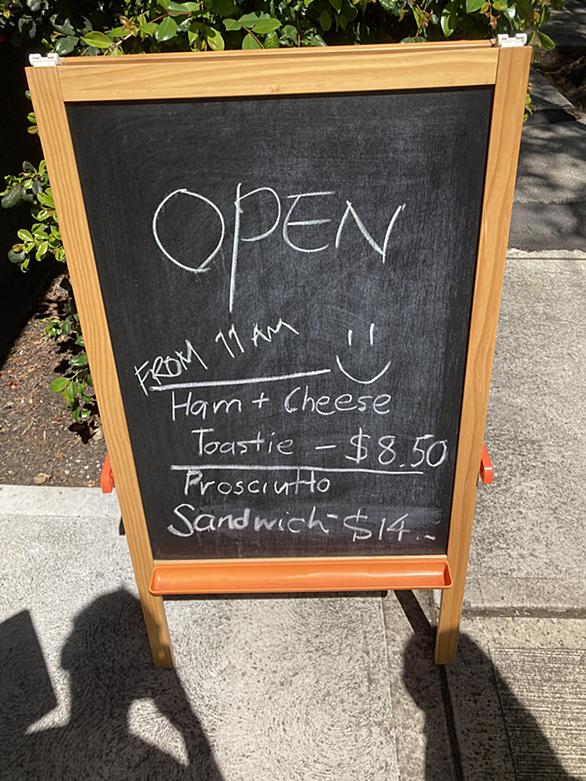 OPEN
FROM 11 AM
Ham + Cheese
Toastie - $8.50
Prosciutto
Sandwich - $14.-